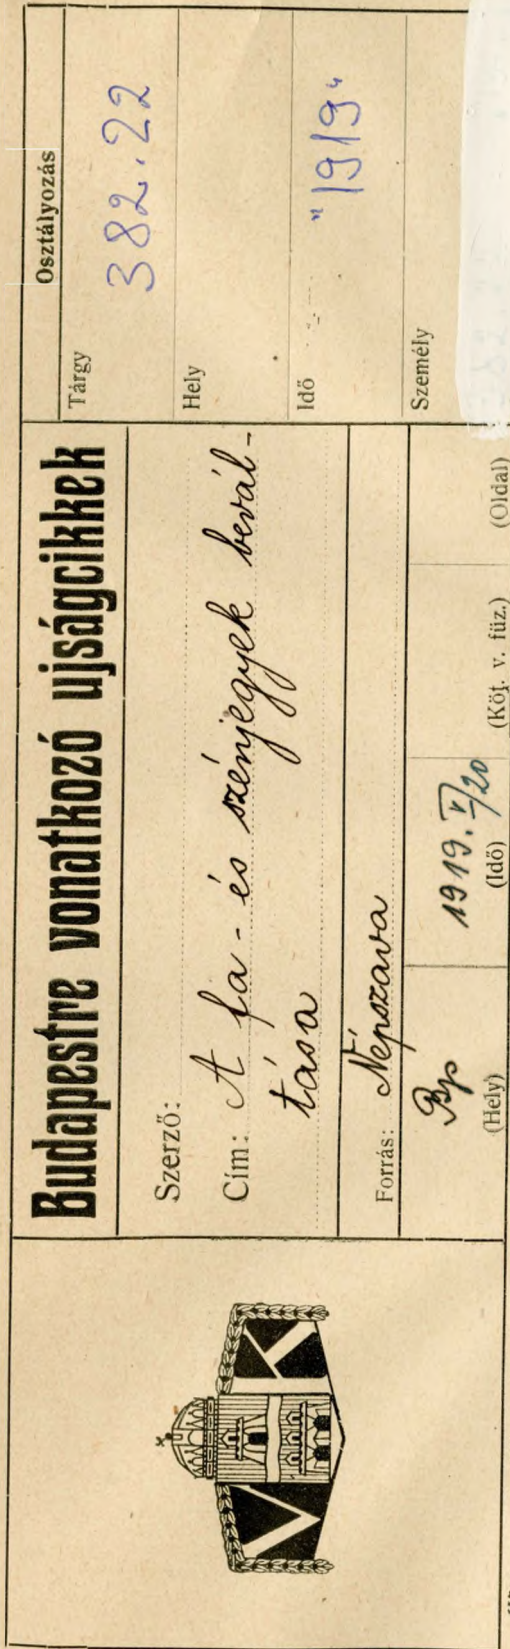 VK
Budapestre vonatkozó ujságcikkek
Szerző:
Cím: A fa- és szénjegyek bevál-
tása
Forrás: Népszava
Bp 1919. V/20
(Hely) (Idő) (Köt. v. füz.) (Oldal)
Osztályozás
Tárgy 382.22
Hely
Idő "1919"
Személy